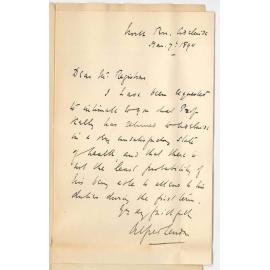 North Tce, Adelaide
Mar. 7th 1894
Dear Mr Registrar
I have been requested
to intimate to you that Prof
Kelly has returned to Adelaide
in a very unsatisfactory state
of health and that there is
not the least probability of
his being able to attend to his
duties during the first term.
Yrs very faithfully
Alfred Lendon